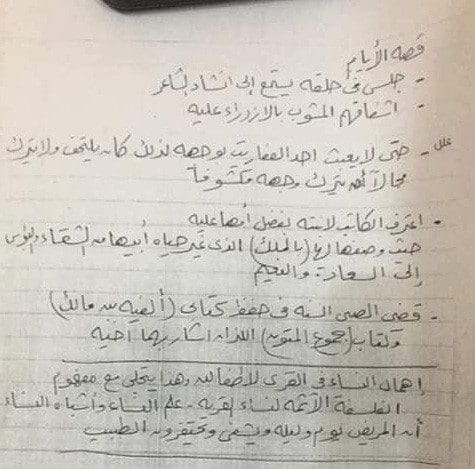 قصة الأيام
- جلس في حلقه يستمع إلى انشاد لشاعر
- اشفاقهم المشوب بالازدراء عليه
علل - حتى لا يعبث احد العفاريت بوجهه لذلك كان يلتحف ولا يترك
مجالاً يترك وجهه مكشوفاً
- اعترف الكاتب لابنته بفضل أمها عليه
حيث وصفها لها (بالملك) الذي غير حياه أبيها من الشقاء والبؤس
إلى السعادة والنعيم
- قضى الصبى السنه فى حفظ كتابى (ألفيه بن مالك)
وكتاب (مجموع المتون) اللذان اشار بهما أخيه
إهمال النساء فى القرى لاطفالهن وهذا يتجلى مع مفهوم
الفلسفة الآثمه لنساء القريه - علم النساء وأشباه النساء
أن المريض يوم وليله ويشفى وتحتقرون الطبيب